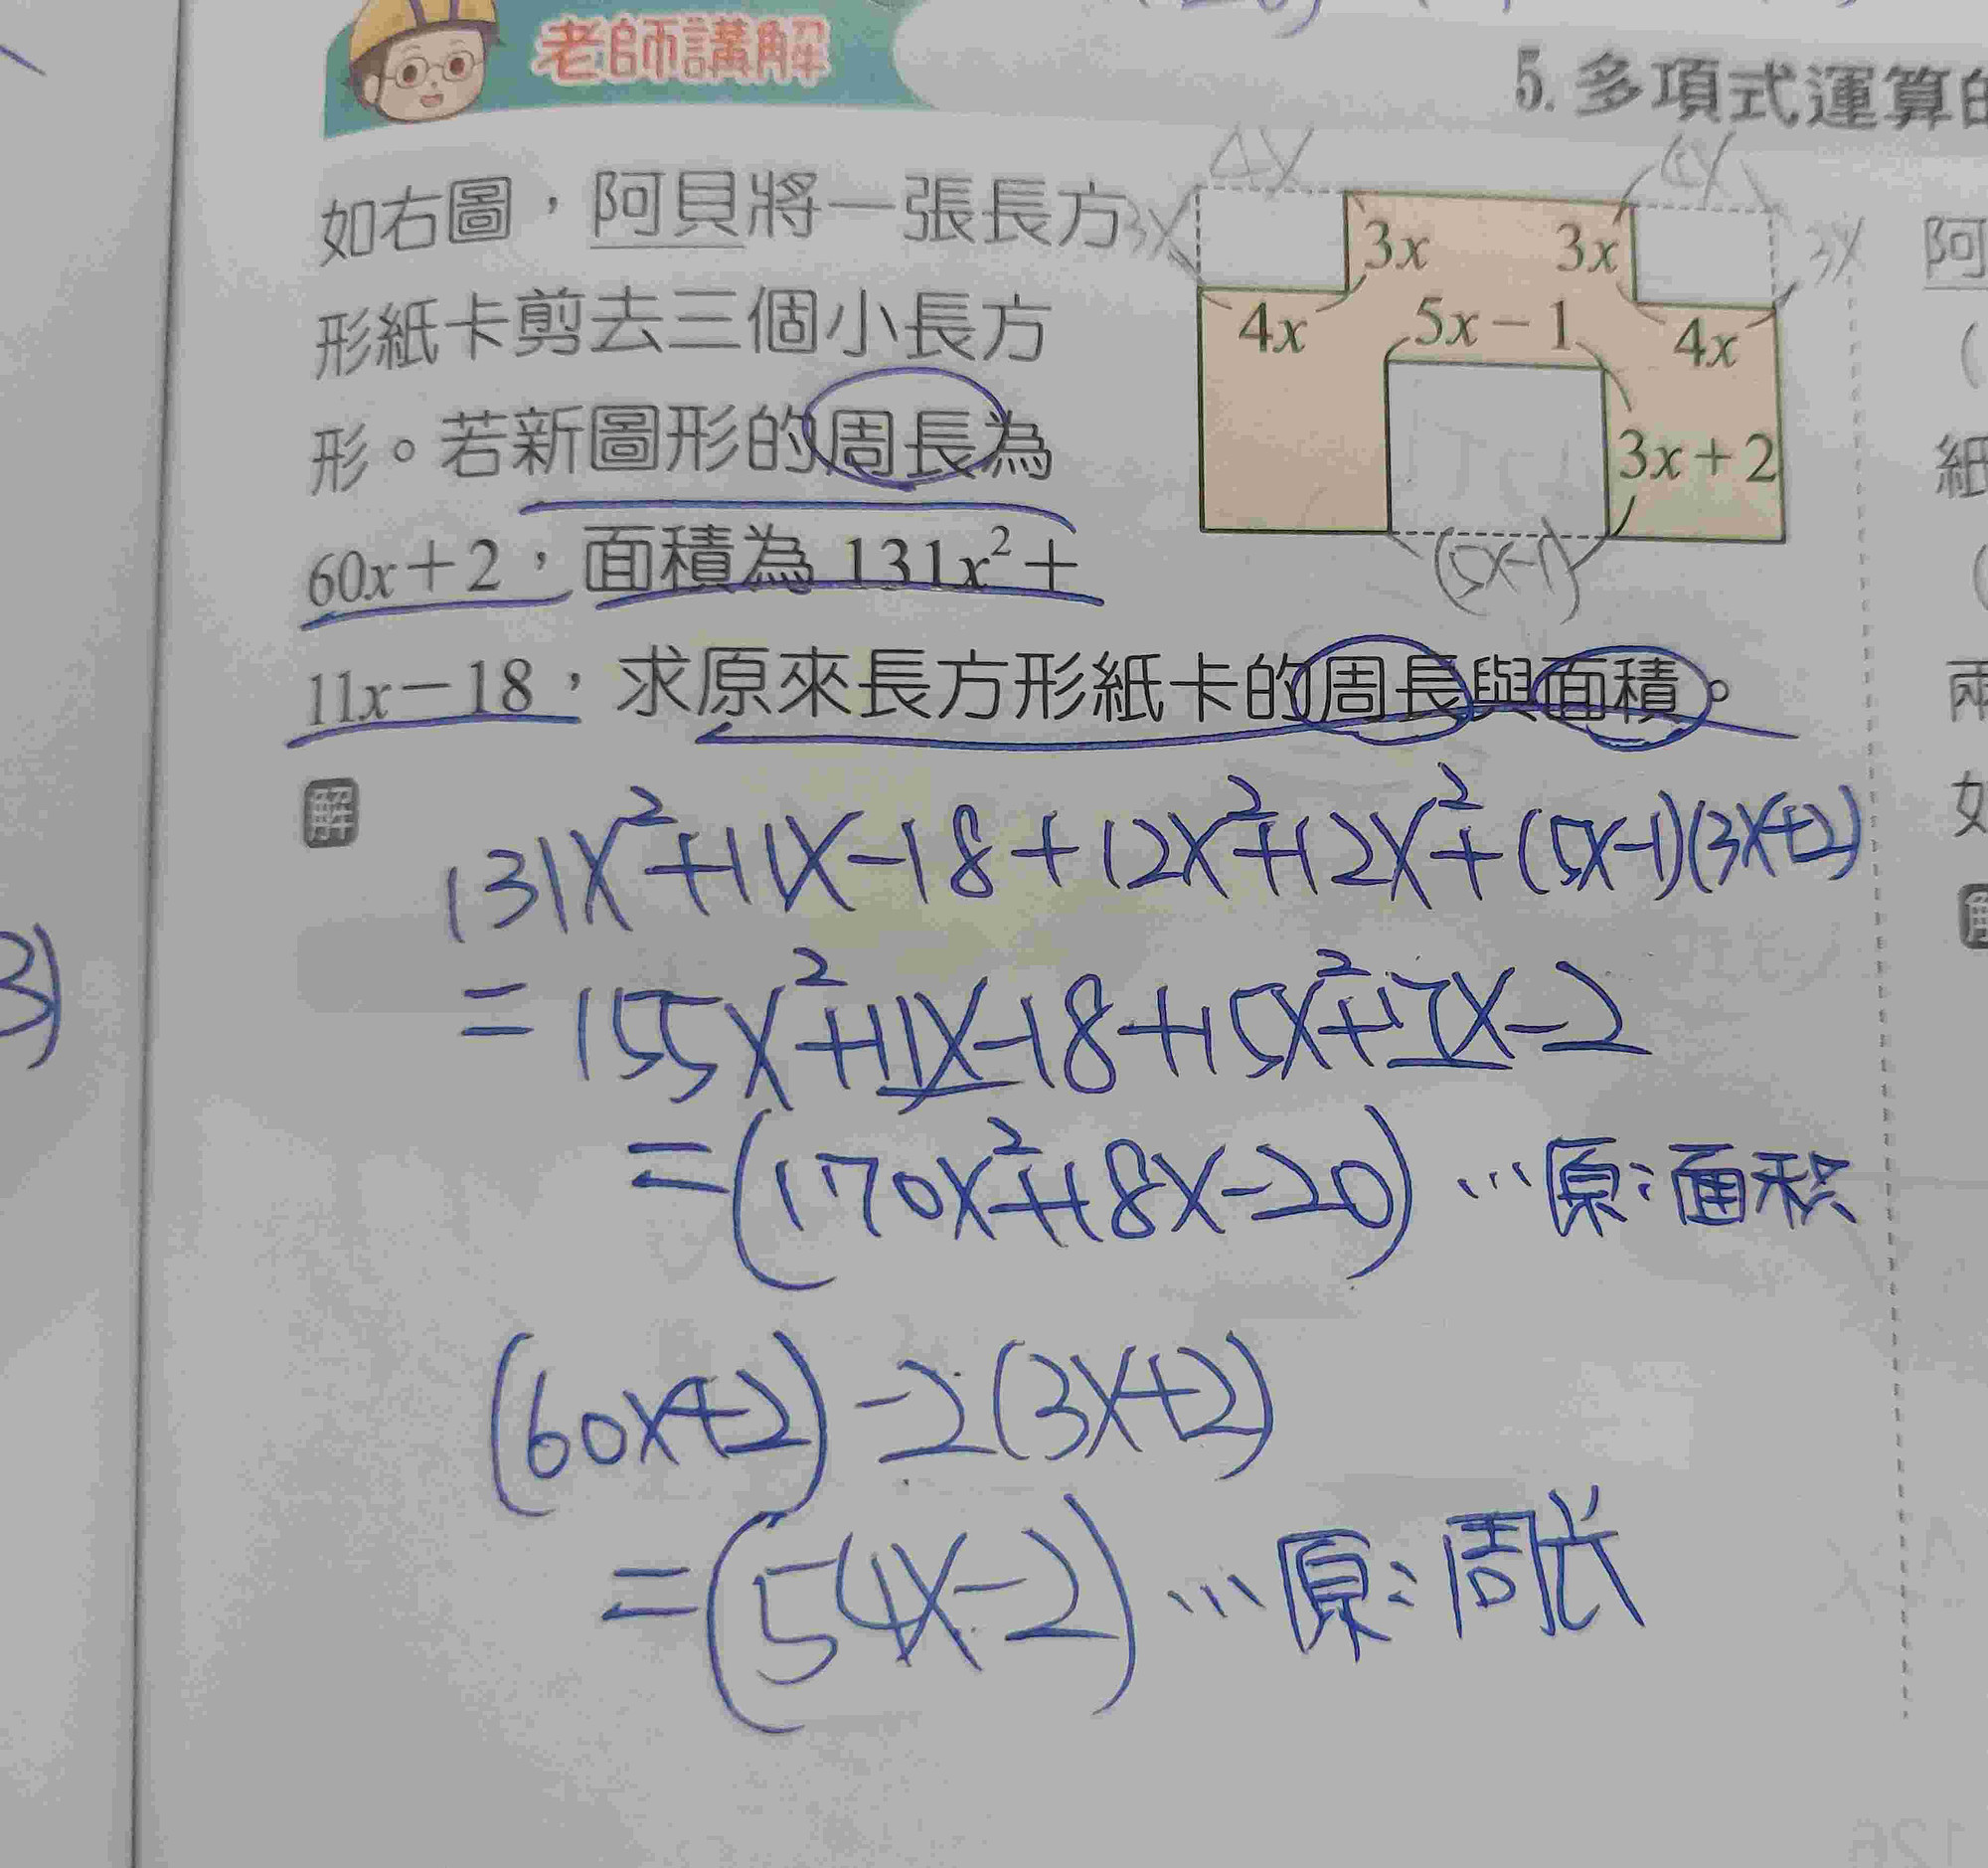 老師講解
5. 多項式運算的
如右圖，阿貝將一張長方
形紙卡剪去三個小長方
形。若新圖形的周長為
60x＋2，面積為 131x²＋
11x－18，求原來長方形紙卡的周長與面積。
4x
4x
3x
3x
3x
3x
4x
5x－1
4x
3x＋2
(5x-1)
解
131x²+11x-18+12x²+12x²+(5x-1)(3x+2)
=155x²+11x-18+15x²+7x-2
=(170x²+18x-20) …原:面积
(60x+2)-2(3x+2)
=(54x-2) …原:周长
3)
阿
(
紙
(
兩
如
126